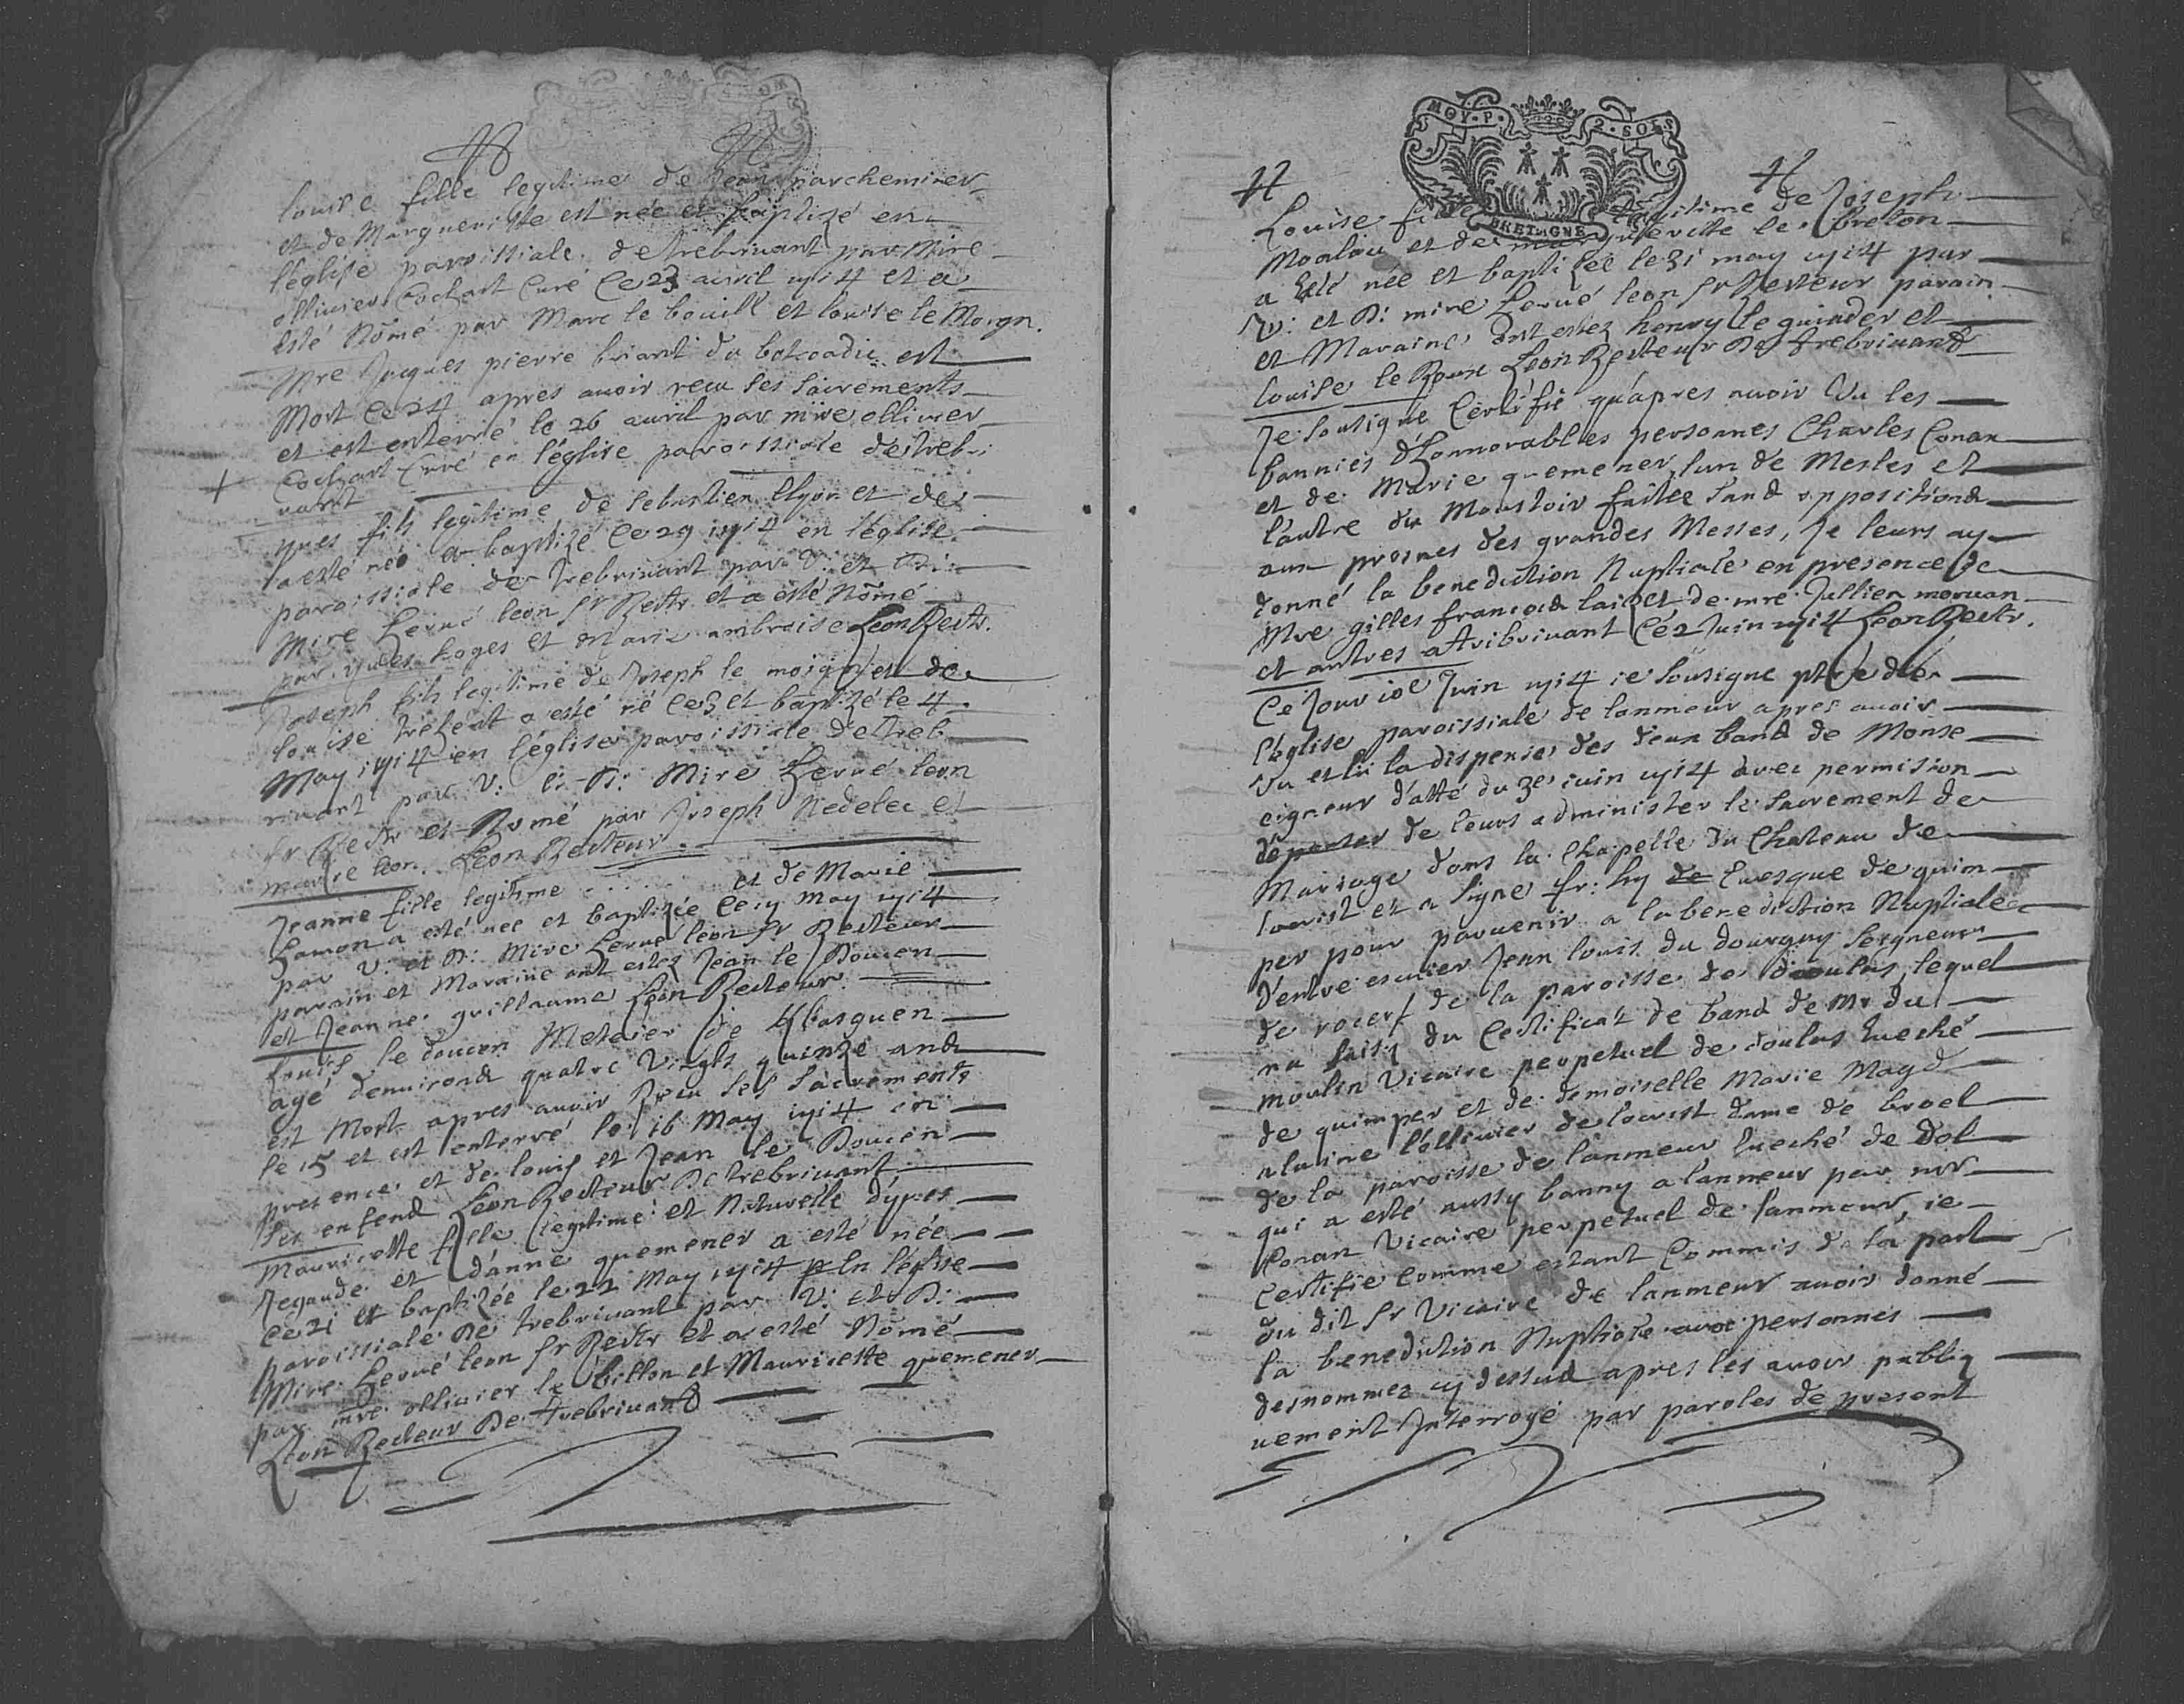 Louise fille legitime de Jean parcheminer
et de Margueritte est née et baptizé en
l'églifse paroissiale de trebrivant par Mire
ollivier Cochart Curé Ce 23 avril 1714 et a
esté Nõmé par Marc le bouill et louise le Moign.
Mre Jacques pierre briant du botcoadic est
Mort Ce 24 apres avoir recu ses sacrements
et est enterré le 26 avril par mire ollivier
+ Cochart Curé en l'églire paroissiale de trebri
vant
yves fils legitime de sebastien et de
a esté né et baptizé Ce 29 1714 en l'églife
paroissiale de trebrivant par V: et D:
Mire hervé leon Sr Rectr et a esté Nõmé
par yves hoges et Marie ambroise Leon Rectr.
Joseph fils legitime de Joseph le moign et de
louise a esté né Ce 3 et baptizé le 4
May 1714 en l'églire paroissiale de treb
rivant par V: et D: Mire hervé leon
Sr Rectr et Nomé par Joseph Nedelec et
marie leon. Leon Recteur.
Jeanne fille legitime . . . . . et de Marie
hamon a esté née et baptizée Ce May 1714
par V: et D: Mire hervé leon Sr Recteur
parain et Maraine ont estez Jean le Doucen
et Jeanne guillaume Leon Recteur.
Louis le doucen Metaier de
agé d'environd quatre Vingts quinze and
est Mort apres avoir Receu ses sacrements
le 15 et est enterré le 16 May 1714 en
presence et de louis et Jean le Doucen
ses enfend Leon Recteur De trebrivant,
Mauricette fille legitime et Naturelle d'yves
Jegaude et d'anne quemener a esté née
Ce 21 et baptizée le 22 May 1714 en l'églire
paroissiale de trebrivant par V: et D:
Mire hervé leon Sr Rectr et a esté Nõmé
par mre ollivier le billon et Mauricette quemener
Leon Recteur De trebrivant
MOY. P. 2. SOLS
BRETAGNE
Louise fille legitime de Joseph
Moalou et de margueritte le breton
a esté née et baptizée le 31 may 1714 par
V: et D: mire hervé leon Sr Recteur parain
et Maraine ont estez henry le guiader et
louise le Roux Leon Recteur De trebrivant
Je sousigne Certifié qu'apres avoir Vu les
bannies d'honnorables personnes Charles Conan
et de Marie quemener l'un de Mesles et
l'autre du Moustoir faites sand oppositiond
aux prosnes des grandes Messes, Je leurs ay
donné la benediction Nuptiale en presence de
Mre gilles francois et de mre Jullien morvan
et autres a tribrivant Ce 2 Juin 1714 Leon Rectr.
Ce Jour 10e Juin 1714 ie sousigne ptre de
l'église paroissiale de lanmeur apres avoir
vu et lu la dispense des deux band de Monse
eigneur d'atté du 3e iuin 1714 avec permision
de leurs administer le sacrement de
Mariage dans la Chapelle du Chateau de
lourist et a signe fr: hy de Evesque de quim
per pour parvenir a la benediction Nuptiale
d'entre escuier Jean louis du dourguy seigneur
de rocerf de la paroisse de doulas lequel
ma saisy du Certificat de band de Mr du
moulin Vicaire perpetuel de doulas Eveché
de quimper et de demoiselle Marie Magd
alaine l'ollivier de lourist dame de broel
de la paroisse de lanmeur Eveché de Dol
qui a esté aussy banny a lanmeur par mr
Conan Vicaire perpetuel de lanmeur, ie
Certifie Comme estant Commis de la part
du dit Sr Vicaire de lanmeur avoir donné
la benediction Nuptiale aux personnes
desnommez cy dessud apres les avoir publiq
uement Interrogé par paroles de present